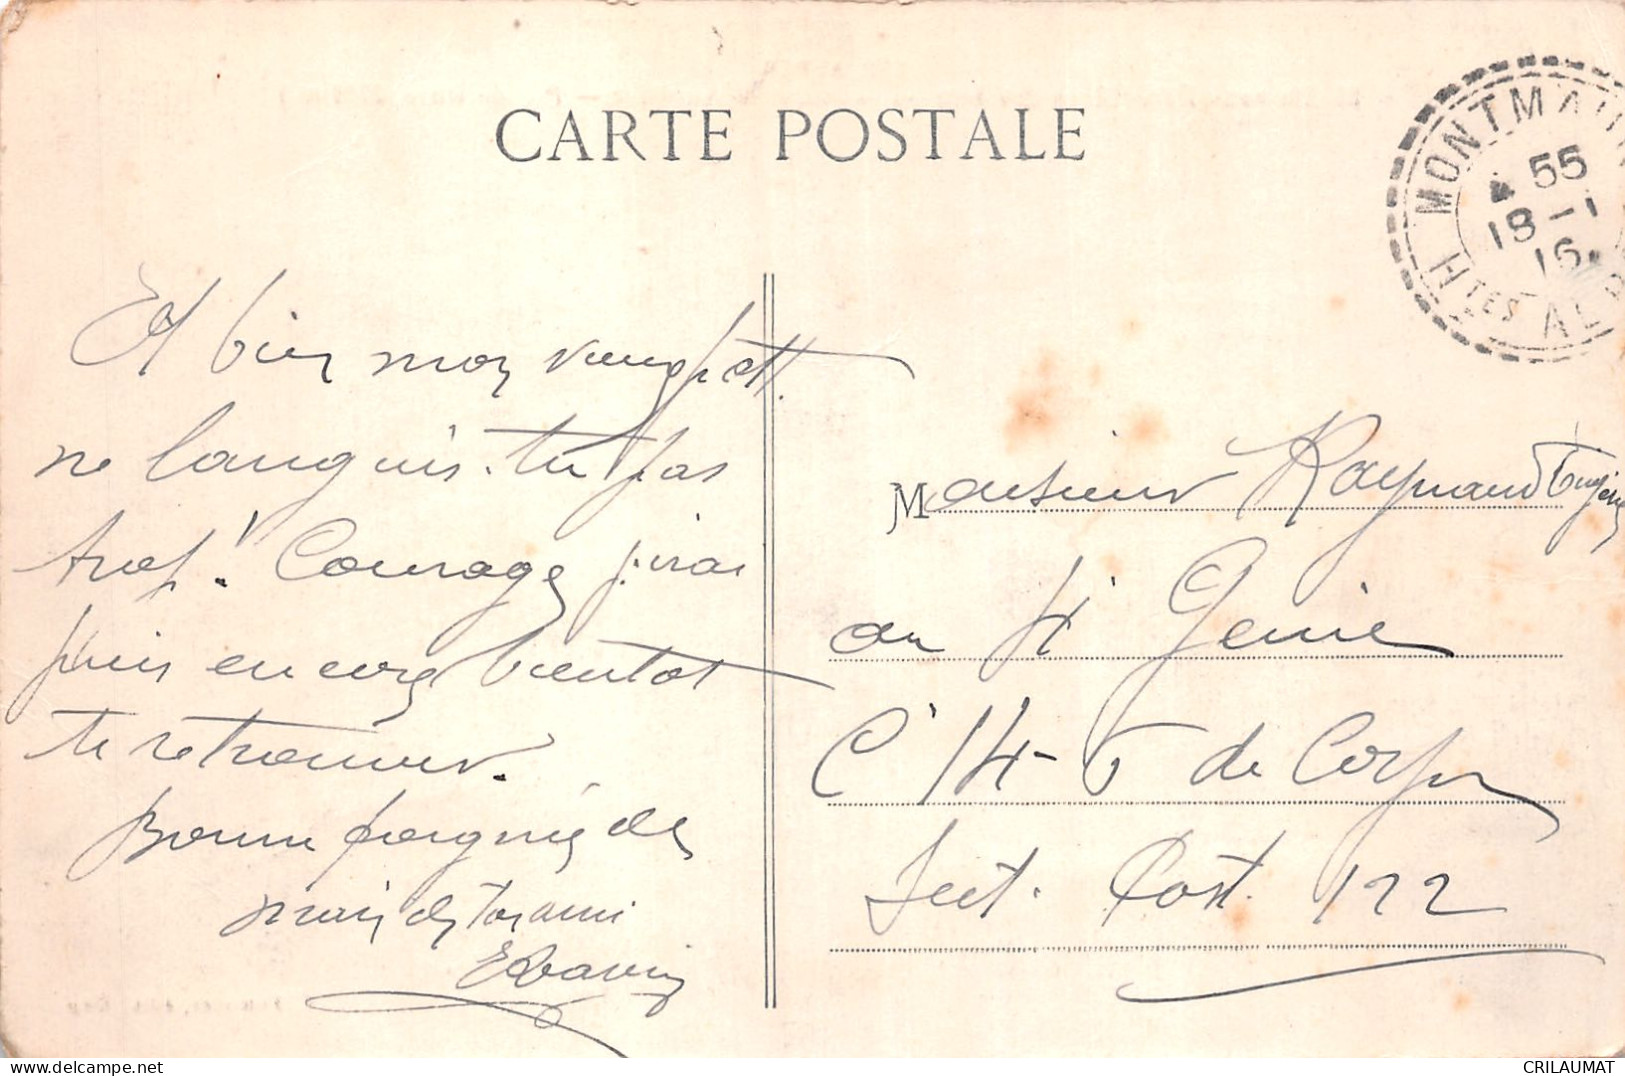 CARTE POSTALE
MONTMAUR
4 55
18-1
16
HTES ALP
Et bien mon vieux
ne languis-tu pas
trop! Courage j'irai
puis encore bientot
te retrouver.
Bonne poignée de
main de ton ami
Monsieur Raynaud Eugène
au 4e Génie
Cie 14-6 de Corps
Sect. Post. 122
CRILAUMAT